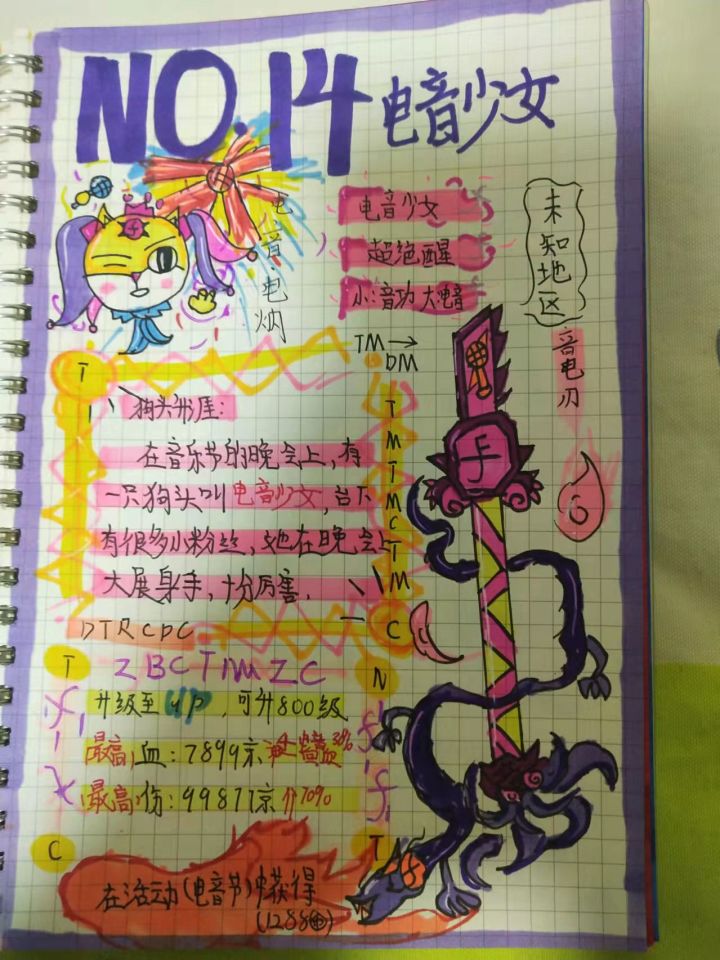 NO.14 电音少女
电音少女
电音·电炮
超绝醒
小:音功 大:蝰音
未知地区
音电刃
TM→
DM
T
狗头形涯:
在音乐节的晚会上,有
一只狗头叫电音少女,台下
有很多小粉丝,她在晚会上
大展身手,十分厉害.
T
M
T
M
C
T
M
C
DTRCDC
T
ZBCTMZC
N
升级至up,可升800级
最高血:7899京
30%
最高伤:99877京 介70%
C
T
在活动(电音节)中获得
(1288